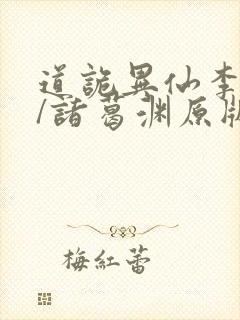 道詭異仙李
/諸葛渊原版
梅紅蕾